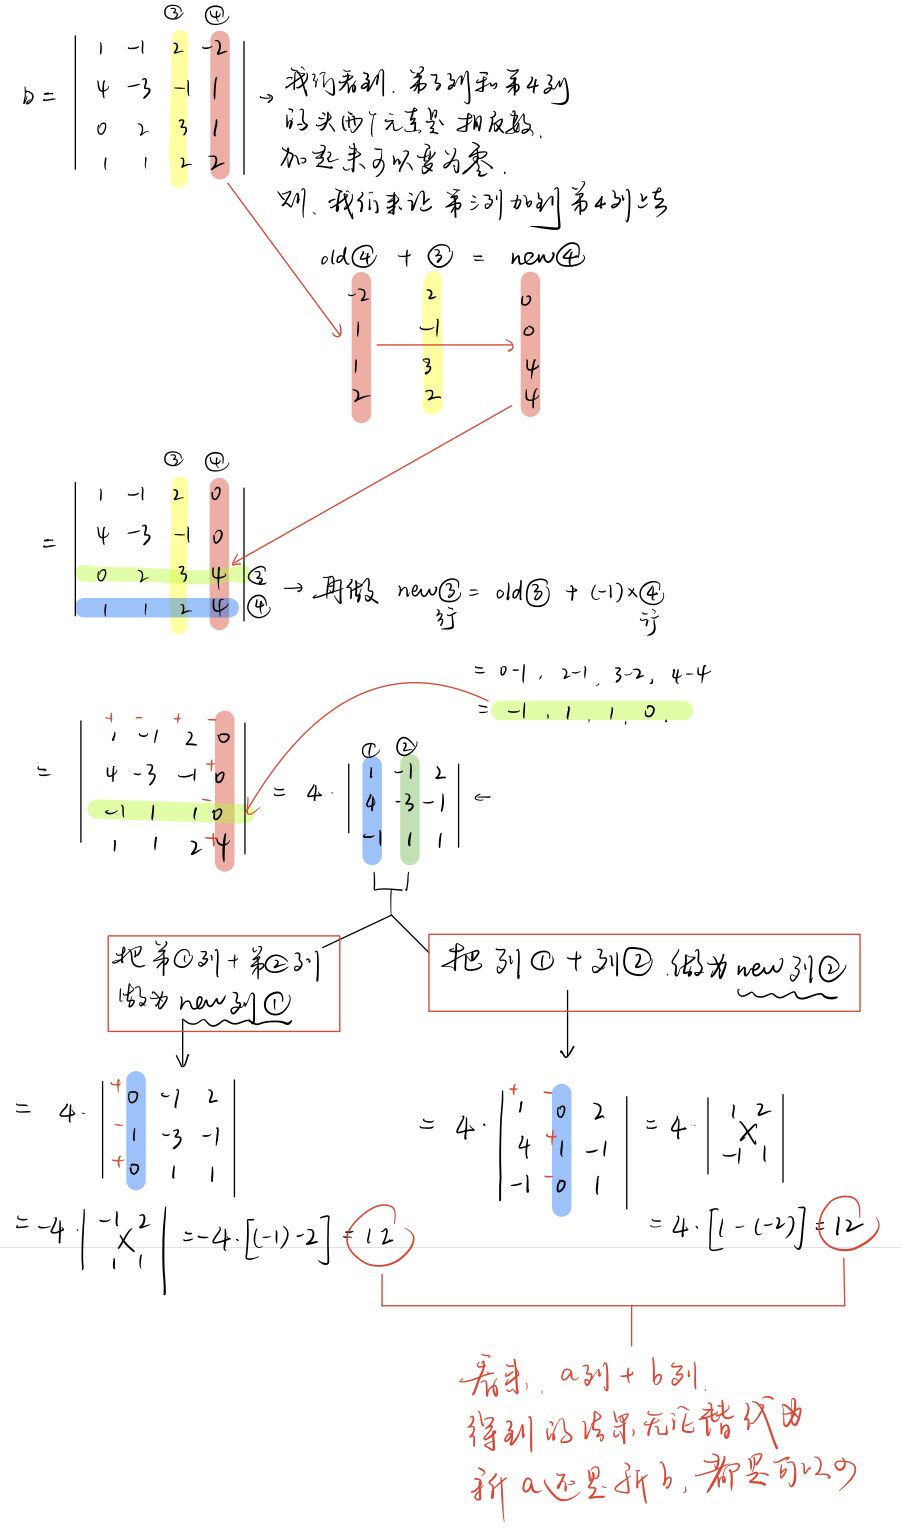 ③ ④
b = | 1 -1 2 -2 |
| 4 -3 -1 1 | → 我们看到，第3列和第4列
| 0 2 3 1 | 的头两个元素是相反数，
| 1 1 2 2 | 加起来可以变为零.
则，我们来让第三列加到第4列上去
old④ + ③ = new④
-2 2 0
1 -1 0
1 3 4
2 2 4
③ ④
= | 1 -1 2 0 |
| 4 -3 -1 0 |
| 0 2 3 4 | ③ → 再做 new③行 = old③ + (-1)×④行
| 1 1 2 4 | ④
= 0-1, 2-1, 3-2, 4-4
= -1, 1, 1, 0.
+ - + -
= | 1 -1 2 0 |
| 4 -3 -1 +0 |
| -1 1 1 -0 |
| 1 1 2 +4 |
① ②
= 4· | 1 -1 2 | ←
| 4 -3 -1 |
| -1 1 1 |
把第①列+第②列
做为new列①
把列①+列②.做为new列②
= 4· | +0 -1 2 |
| -1 -3 -1 |
| +0 1 1 |
= -4· | -1 2 | = -4·[(-1)-2] = 12
| 1 1 |
+ -
= 4· | 1 0 2 | = 4· | 1 2 |
| 4 +1 -1 | | -1 1 |
| -1 -0 1 |
= 4·[1-(-2)] = 12
看来，a列+b列，
得到的结果，无论替代为
新a还是新b，都是可以的